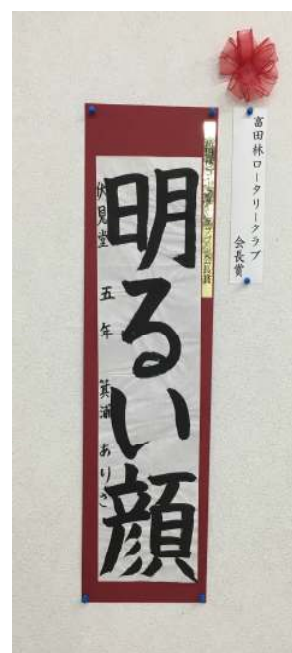 富田林ロータリークラブ
会長賞
明るい顔
伏見堂 五年 箕浦 ありさ